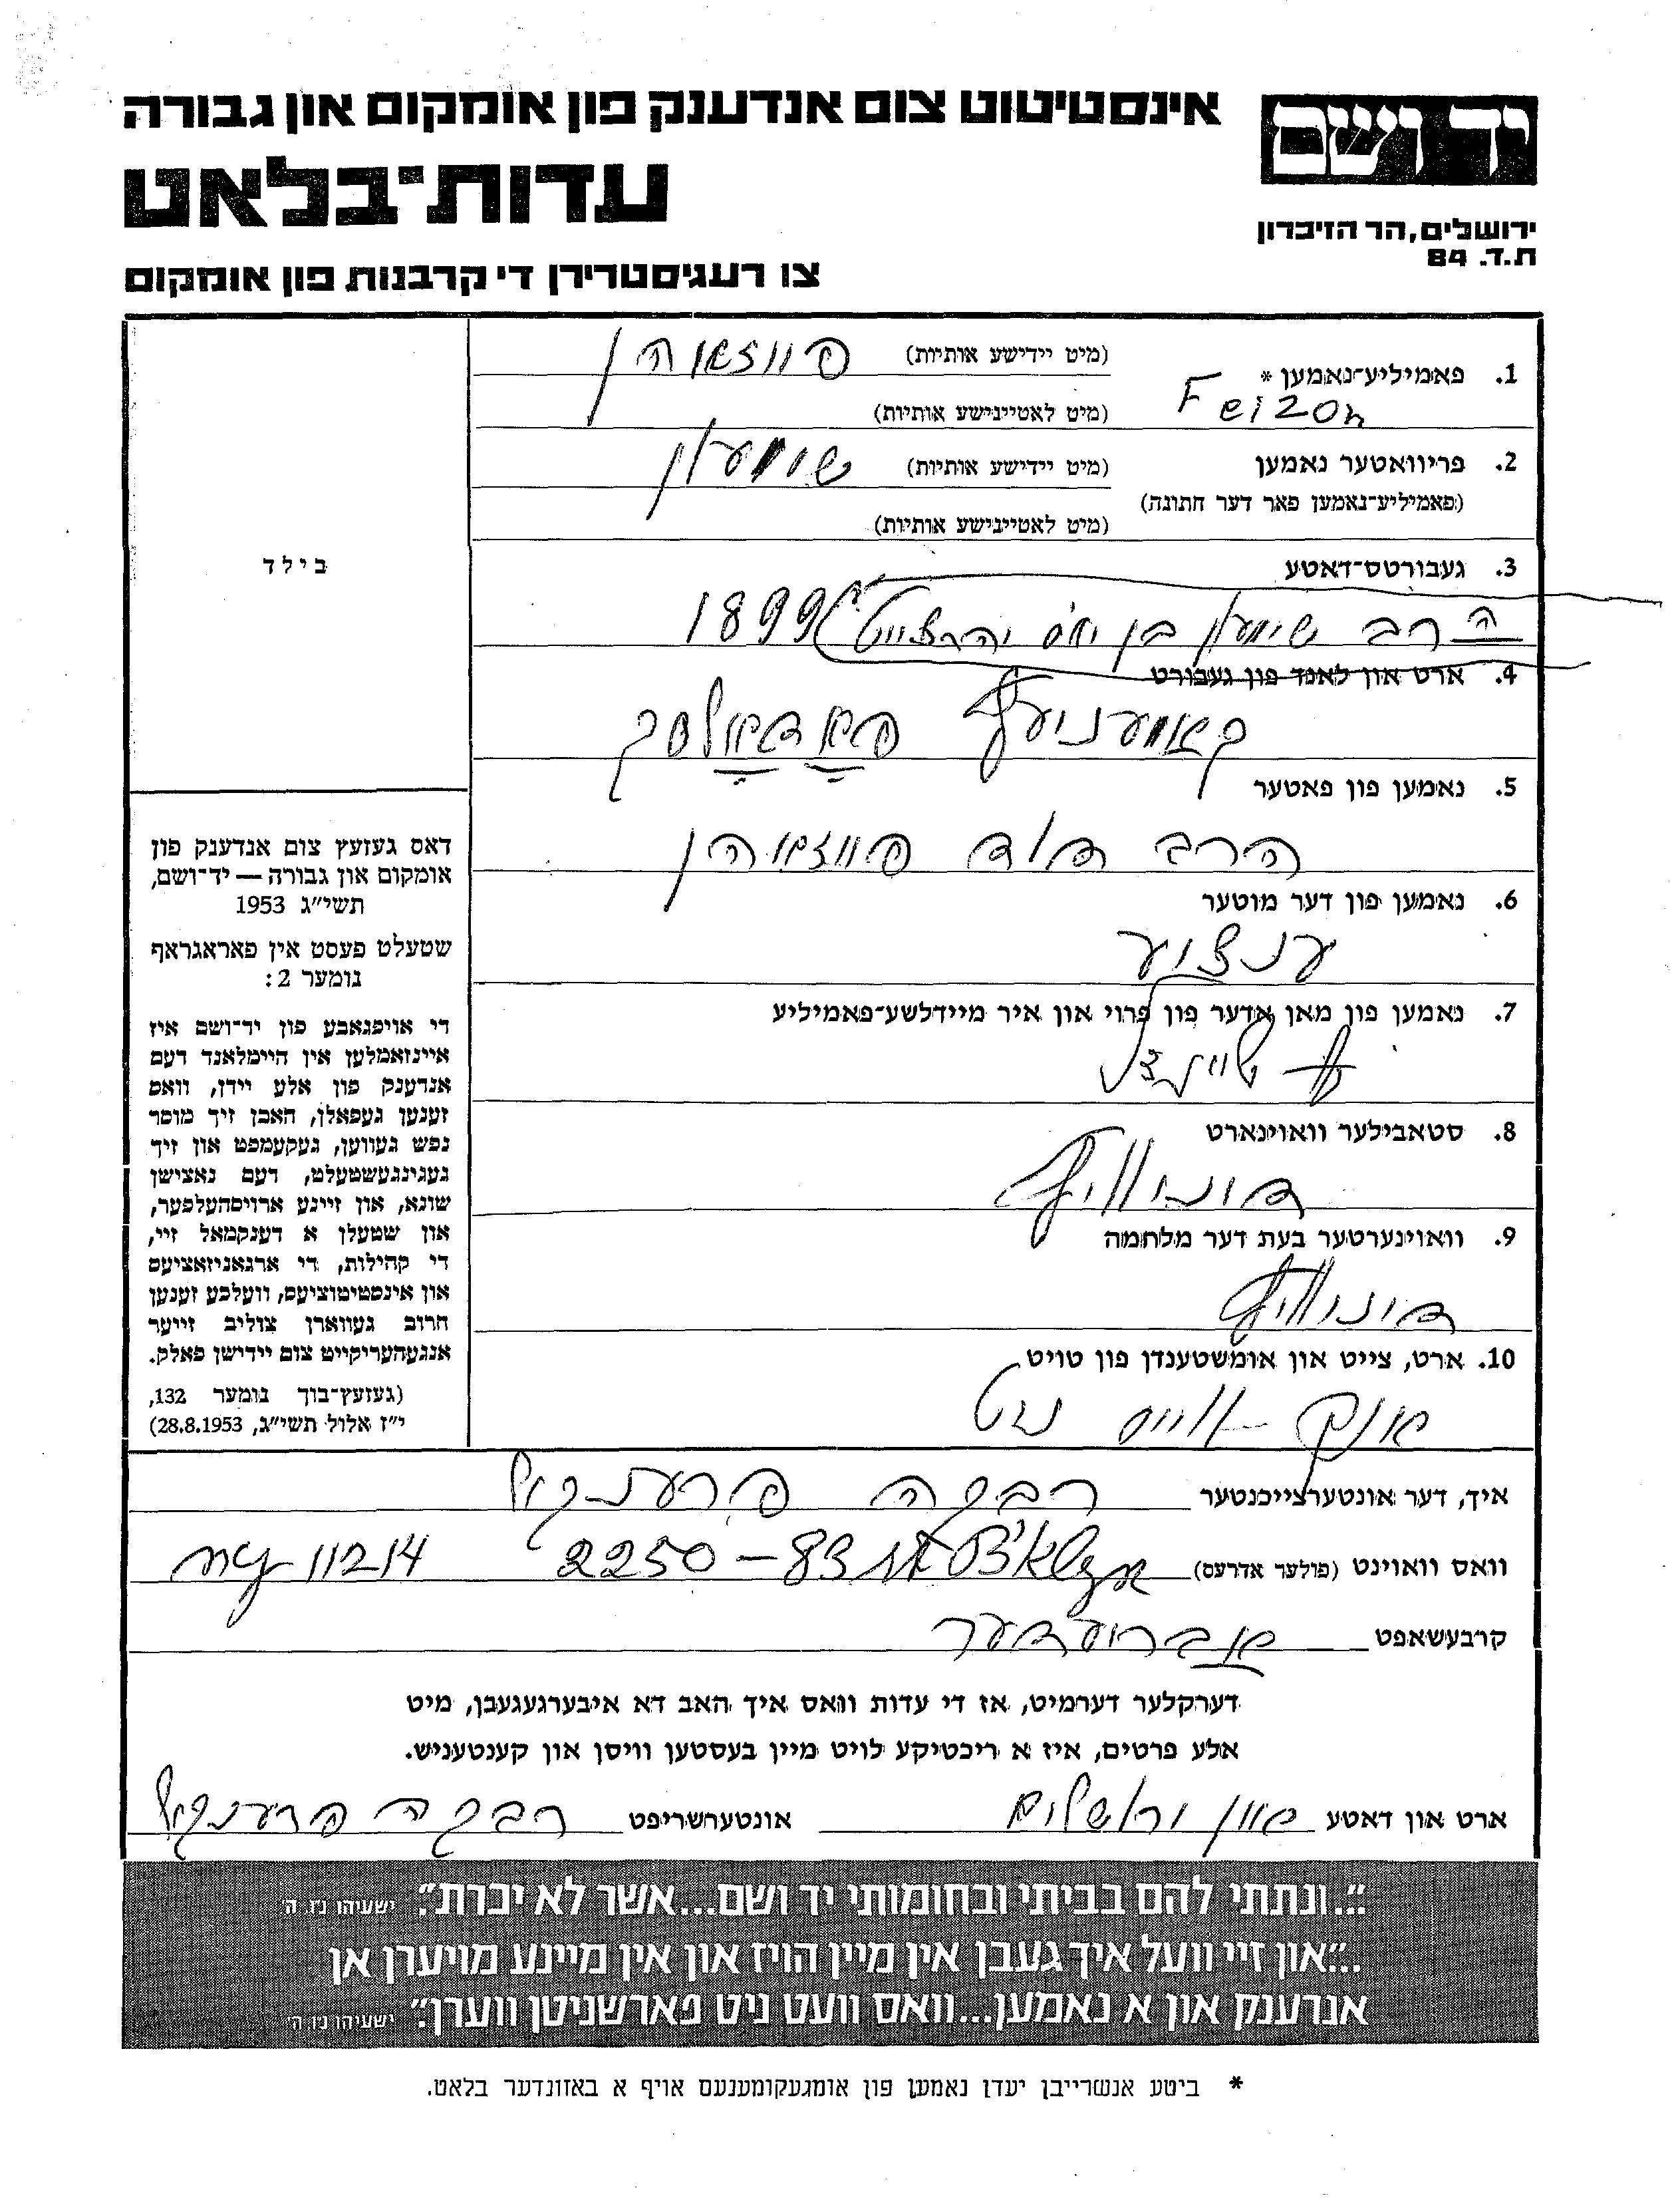 אינסטיטוט צום אנדענק פון אומקום און גבורה
יד ושם
עדות־בלאט
ירושלים, הר הזיכרון
ת.ד. 84
צו רעגיסטרירן די קרבנות פון אומקום
1. פאמיליע־נאמען *
(מיט יידישע אותיות)
(מיט לאטיינישע אותיות)
Feizon
2. פריוואטער נאמען
(מיט יידישע אותיות) שמעון
(פאמיליע־נאמען פאר דער חתונה)
(מיט לאטיינישע אותיות)
3. געבורטס־דאטע
הרב שמעון בן 1899
4. ארט און לאנד פון געבורט
קאמעניעץ פאדאלסק
5. נאמען פון פאטער
הרב דוד
6. נאמען פון דער מוטער
7. נאמען פון מאן אדער פון פרוי און איר מיידלשע־פאמיליע
8. סטאבילער וואוינארט
9. וואוינערטער בעת דער מלחמה
10. ארט, צייט און אומשטענדן פון טויט
ווייס ניט
בילד
דאס געזעץ צום אנדענק פון
אומקום און גבורה — יד־ושם,
תשי״ג 1953
שטעלט פעסט אין פאראגראף
נומער 2:
די אויפגאבע פון יד־ושם איז
איינזאמלען אין היימלאנד דעם
אנדענק פון אלע יידן, וואס
זענען געפאלן, האבן זיך מוסר
נפש געווען, געקעמפט און זיך
געגינגעשטעלט, דעם נאצישן
שונא, און זיינע ארויסהעלפער,
און שטעלן א דענקמאל זיי,
די קהילות, די ארגאניזאציעס
און אינסטיטוציעס, וועלכע זענען
חרוב געווארן צוליב זייער
אנגעהעריקייט צום יידישן פאלק.
(געזעץ־בוך נומער 132,
י״ז אלול תשי״ג, 28.8.1953)
איך, דער אונטערצייכנטער רבקה פרענקיל
וואס וואוינט (פולער אדרעס) 2250–83 11214
קרבעשאפט א ברודער
דערקלער דערמיט, אז די עדות וואס איך האב דא איבערגעגעבן, מיט
אלע פרטים, איז א ריכטיקע לויט מיין בעסטען וויסן און קענטעניש.
ארט און דאטע אונטערשריפט רבקה פרענקיל
״..ונתתי להם בביתי ובחומותי יד ושם...אשר לא יכרת״. ישעיהו נ״ו ה׳
..״און זיי וועל איך געבן אין מיין הויז און אין מיינע מויערן אן
אנדענק און א נאמען...וואס וועט ניט פארשניטן ווערן״. ישעיהו נ״ו ה׳
* ביטע אנשרייבן יעדן נאמען פון אומגעקומענעם אויף א באזונדער בלאט.